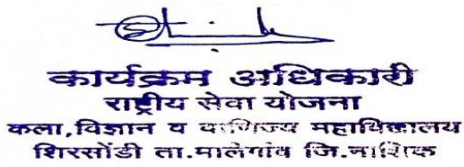 कार्यक्रम अधिकारी
राष्ट्रीय सेवा योजना
कला,विज्ञान व वाणिज्य महाविद्यालय
शिरसोंडी ता.मालेगांव जि.नाशिक